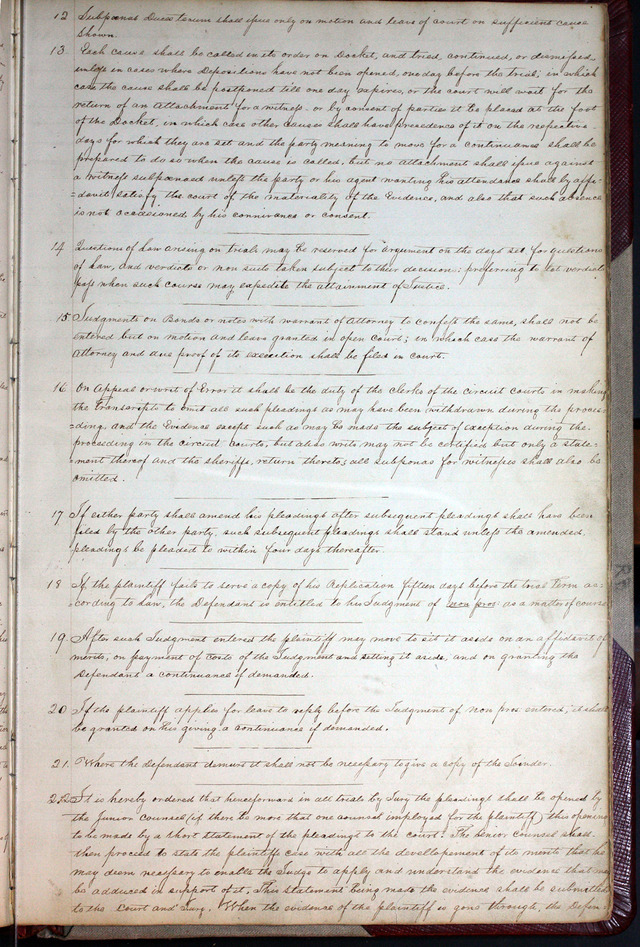 12 Subpœnas Duces tecum shall issue only on motion and leave of court on sufficient cause
Shown.
13 Each cause shall be called in its order on Docket, and tried, continued, or dismissed
unless in cases where Depositions have not been opened, one day before the trial; in which
case the cause shall be postponed till one day expires, or the court will wait for the
return of an Attachment for a witness or by consent of parties it be placed at the foot
of the Docket, in which case other causes shall have precedence of it on the respective
days for which they are set and the party meaning to move for a continuance shall be
prepared to do so when the cause is called, but no attachment shall issue against
a witness subpœnaed unless the party or his agent wanting his attendance shall by affi-
=davit satisfy the court of the materiality of the Evidence, and also that such absence
is not occasioned by his connivance or consent.
14 Questions of Law arising on trials may be reserved for argument on the days set for questions
of Law, and verdicts or non suits taken subject to their decision; preferring to let verdicts
pass when such course may expedite the attainment of Justice.
15 Judgments on Bonds or notes with warrant of Attorney to confess the same, shall not be
entered but on motion and leave granted in open court; in which case the warrant of
Attorney and due proof of its execution shall be filed in court.
16 On Appeal or writ of Error it shall be the duty of the Clerks of the circuit courts in making
the transcripts to omit all such pleadings as may have been withdrawn during the procee-
=ding, and the Evidence except such as may be made the subject of exception during the
proceeding in the circuit courts, but alias writs may not be certified but only a state-
=ment thereof and the sheriffs return thereto; all subponas for witnesses shall also be
omitted.
17 If either party shall amend his pleadings after subsequent pleadings shall have been
filed by the other party, such subsequent pleadings shall stand unless the amended
pleadings be pleaded to within four days thereafter.
18 If the plaintiff fails to serve a copy of his Replication fifteen days before the trial term ac-
=cording to law, the Defendant is entitled to his Judgment of non pros: as a matter of course
19 After such Judgment entered the plaintiff may move to sit it aside on an affidavit of
merits, on payment of costs of the Judgment and setting it aside, and on granting the
Defendant a continuance if demanded.
20 If the plaintiff applies for leave to reply before the Judgment of non pros. entered, it shall
be granted on his giving a continuance if demanded.
21. Where the Defendant demurs it shall not be necessary to give a copy of the Joinder.
22 It is hereby ordered that henceforward in all trials by Jury the pleadings shall be opened by
the Junior Counsel (if there be more that one counsel imployed for the plaintiff) this opening
to be made by a short statement of the pleadings to the court. The Senior Counsel shall
then proceed to state the plaintiffs case with all the developement of its merits that he
may deem necessary to enable the Judge to apply and understand the evidence that may
be adduced in support of it. This statement being made the evidence shall be submitted
to the Court and Jury. When the evidence of the plaintiff is gone through, the Defen-